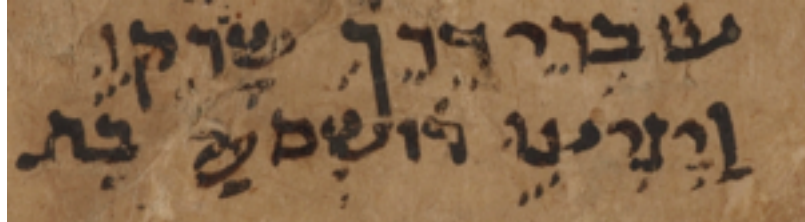 עברי דרך שרקו
ויניעו רושם על בת